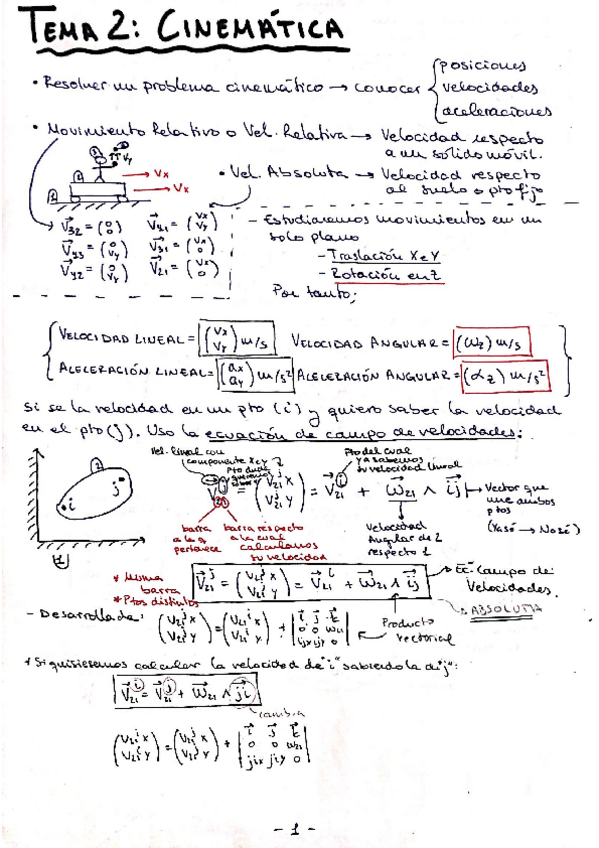 TEMA 2: CINEMÁTICA
• Resolver un problema cinemático → conocer { posiciones
velocidades
aceleraciones
• Movimiento Relativo o Vel. Relativa → Velocidad respecto
a un sólido móvil.
• Vel. Absoluta → Velocidad respecto
al suelo o pto fijo
3
Vy
2
Vx
Vx
1
V⃗32 = (0 0) V⃗y1 = (Vx Vy)
V⃗y3 = (0 Vy) V⃗31 = (Vx 0)
V⃗y2 = (0 Vy) V⃗21 = (Vx 0)
- Estudiaremos movimientos en un
solo plano
- Traslación X e Y
- Rotación en Z
Por tanto:
VELOCIDAD LINEAL = (Vx Vy) m/s VELOCIDAD ANGULAR = (ωz) m/s
ACELERACIÓN LINEAL = (ax ay) m/s² ACELERACIÓN ANGULAR = (αz) m/s²
Si se la velocidad en un pto (i) y quiero saber la velocidad
en el pto (j). Uso la ecuación de campo de velocidades:
Vel. lineal con
componente X e Y
Pto del cual
ya sabemos
su velocidad lineal
2
i
j
V⃗21^j = (V21^j x V21^j y) = V⃗21^i + ω⃗21 ∧ ij → Vector que
une ambos
ptos
(Ya sé → No sé)
barra
a la q
pertenece
barra respecto
a la cual
calculamos
su velocidad
Velocidad
Angular de 2
respecto 1
* Misma
barra
* Ptos distintos
V⃗21^j = (V21^j x V21^j y) = V⃗21^i + ω⃗21 ∧ ij → Ec. Campo de
Velocidades
ABSOLUTA
- Desarrollada: (V21^j x V21^j y) = (V21^i x V21^i y) + |i⃗ j⃗ k⃗ 0 0 ω21 ijx ijy 0|
Producto
vectorial
* Si quisiesemos calcular la velocidad de "i" sabiendo la d "j":
V⃗21^i = V⃗21^j + ω⃗21 ∧ ji
cambia
(V21^i x V21^i y) = (V21^j x V21^j y) + |i⃗ j⃗ k⃗ 0 0 ω21 jix jiy 0|
- 1 -